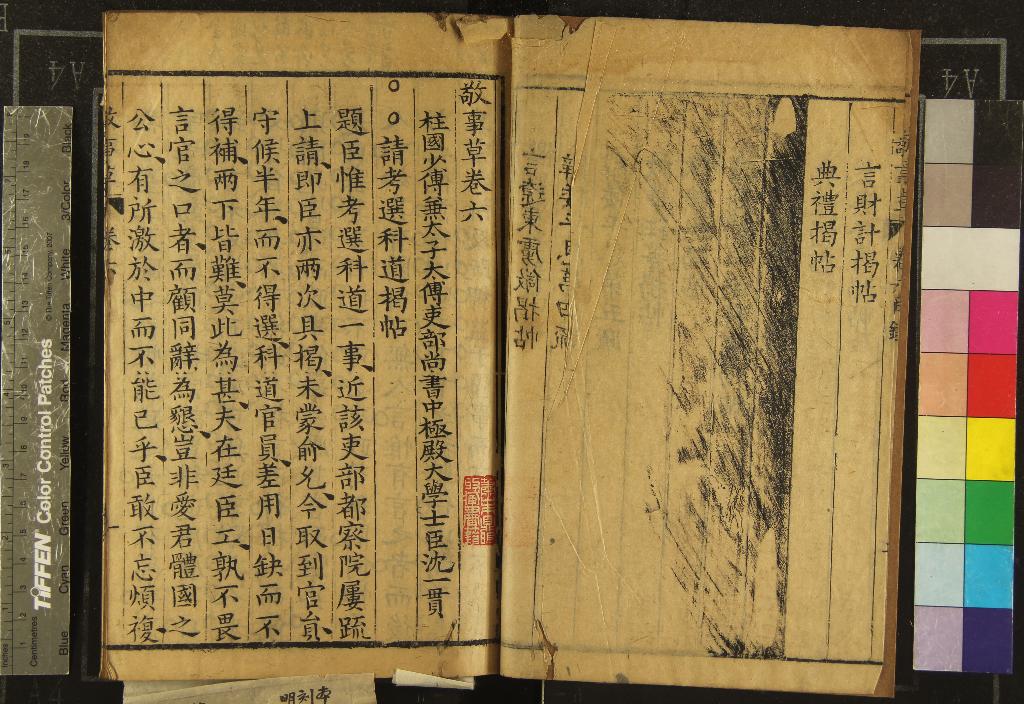 言財計揭帖
典禮揭帖
言遼東虜
揭帖
敬事草卷六
柱國少傅兼太子太傅吏部尚書中極殿大學士臣沈一貫
○○請考選科道揭帖
題臣惟考選科道一事近該吏部都察院屢疏
上請即臣亦兩次具揭未蒙俞允今取到官員
守候半年而不得選科道官員差用日缺而不
得補兩下皆難莫此為甚夫在廷臣工孰不畏
言官之口者而顧同辭為懇豈非愛君體國之
公心有所激於中而不能已乎臣敢不忘煩複
明刻本
TIFFEN Color Control Patches
© The Tiffen Company, 2007
Centimetres
Inches
Blue
Cyan
Green
Yellow
Red
Magenta
White
3/Color
Black
A4
A4